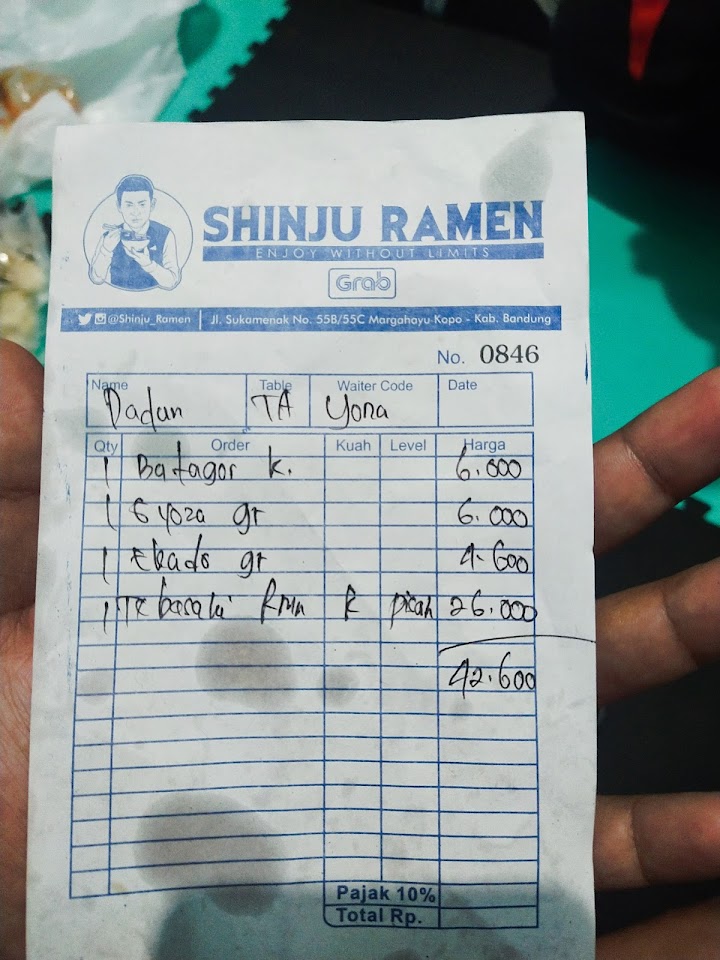 SHINJU RAMEN
ENJOY WITHOUT LIMITS
Grab
@Shinju_Ramen | Jl. Sukamenak No. 55B/55C Margahayu-Kopo - Kab. Bandung
No. 0846
Name Table Waiter Code Date
Dadun TA Yona
Qty Order Kuah Level Harga
1 Batagor k. 6.000
1 Gyoza gr 6.000
1 Ekado gr 4.600
1 R pisah 26.000
42.600
Pajak 10%
Total Rp.